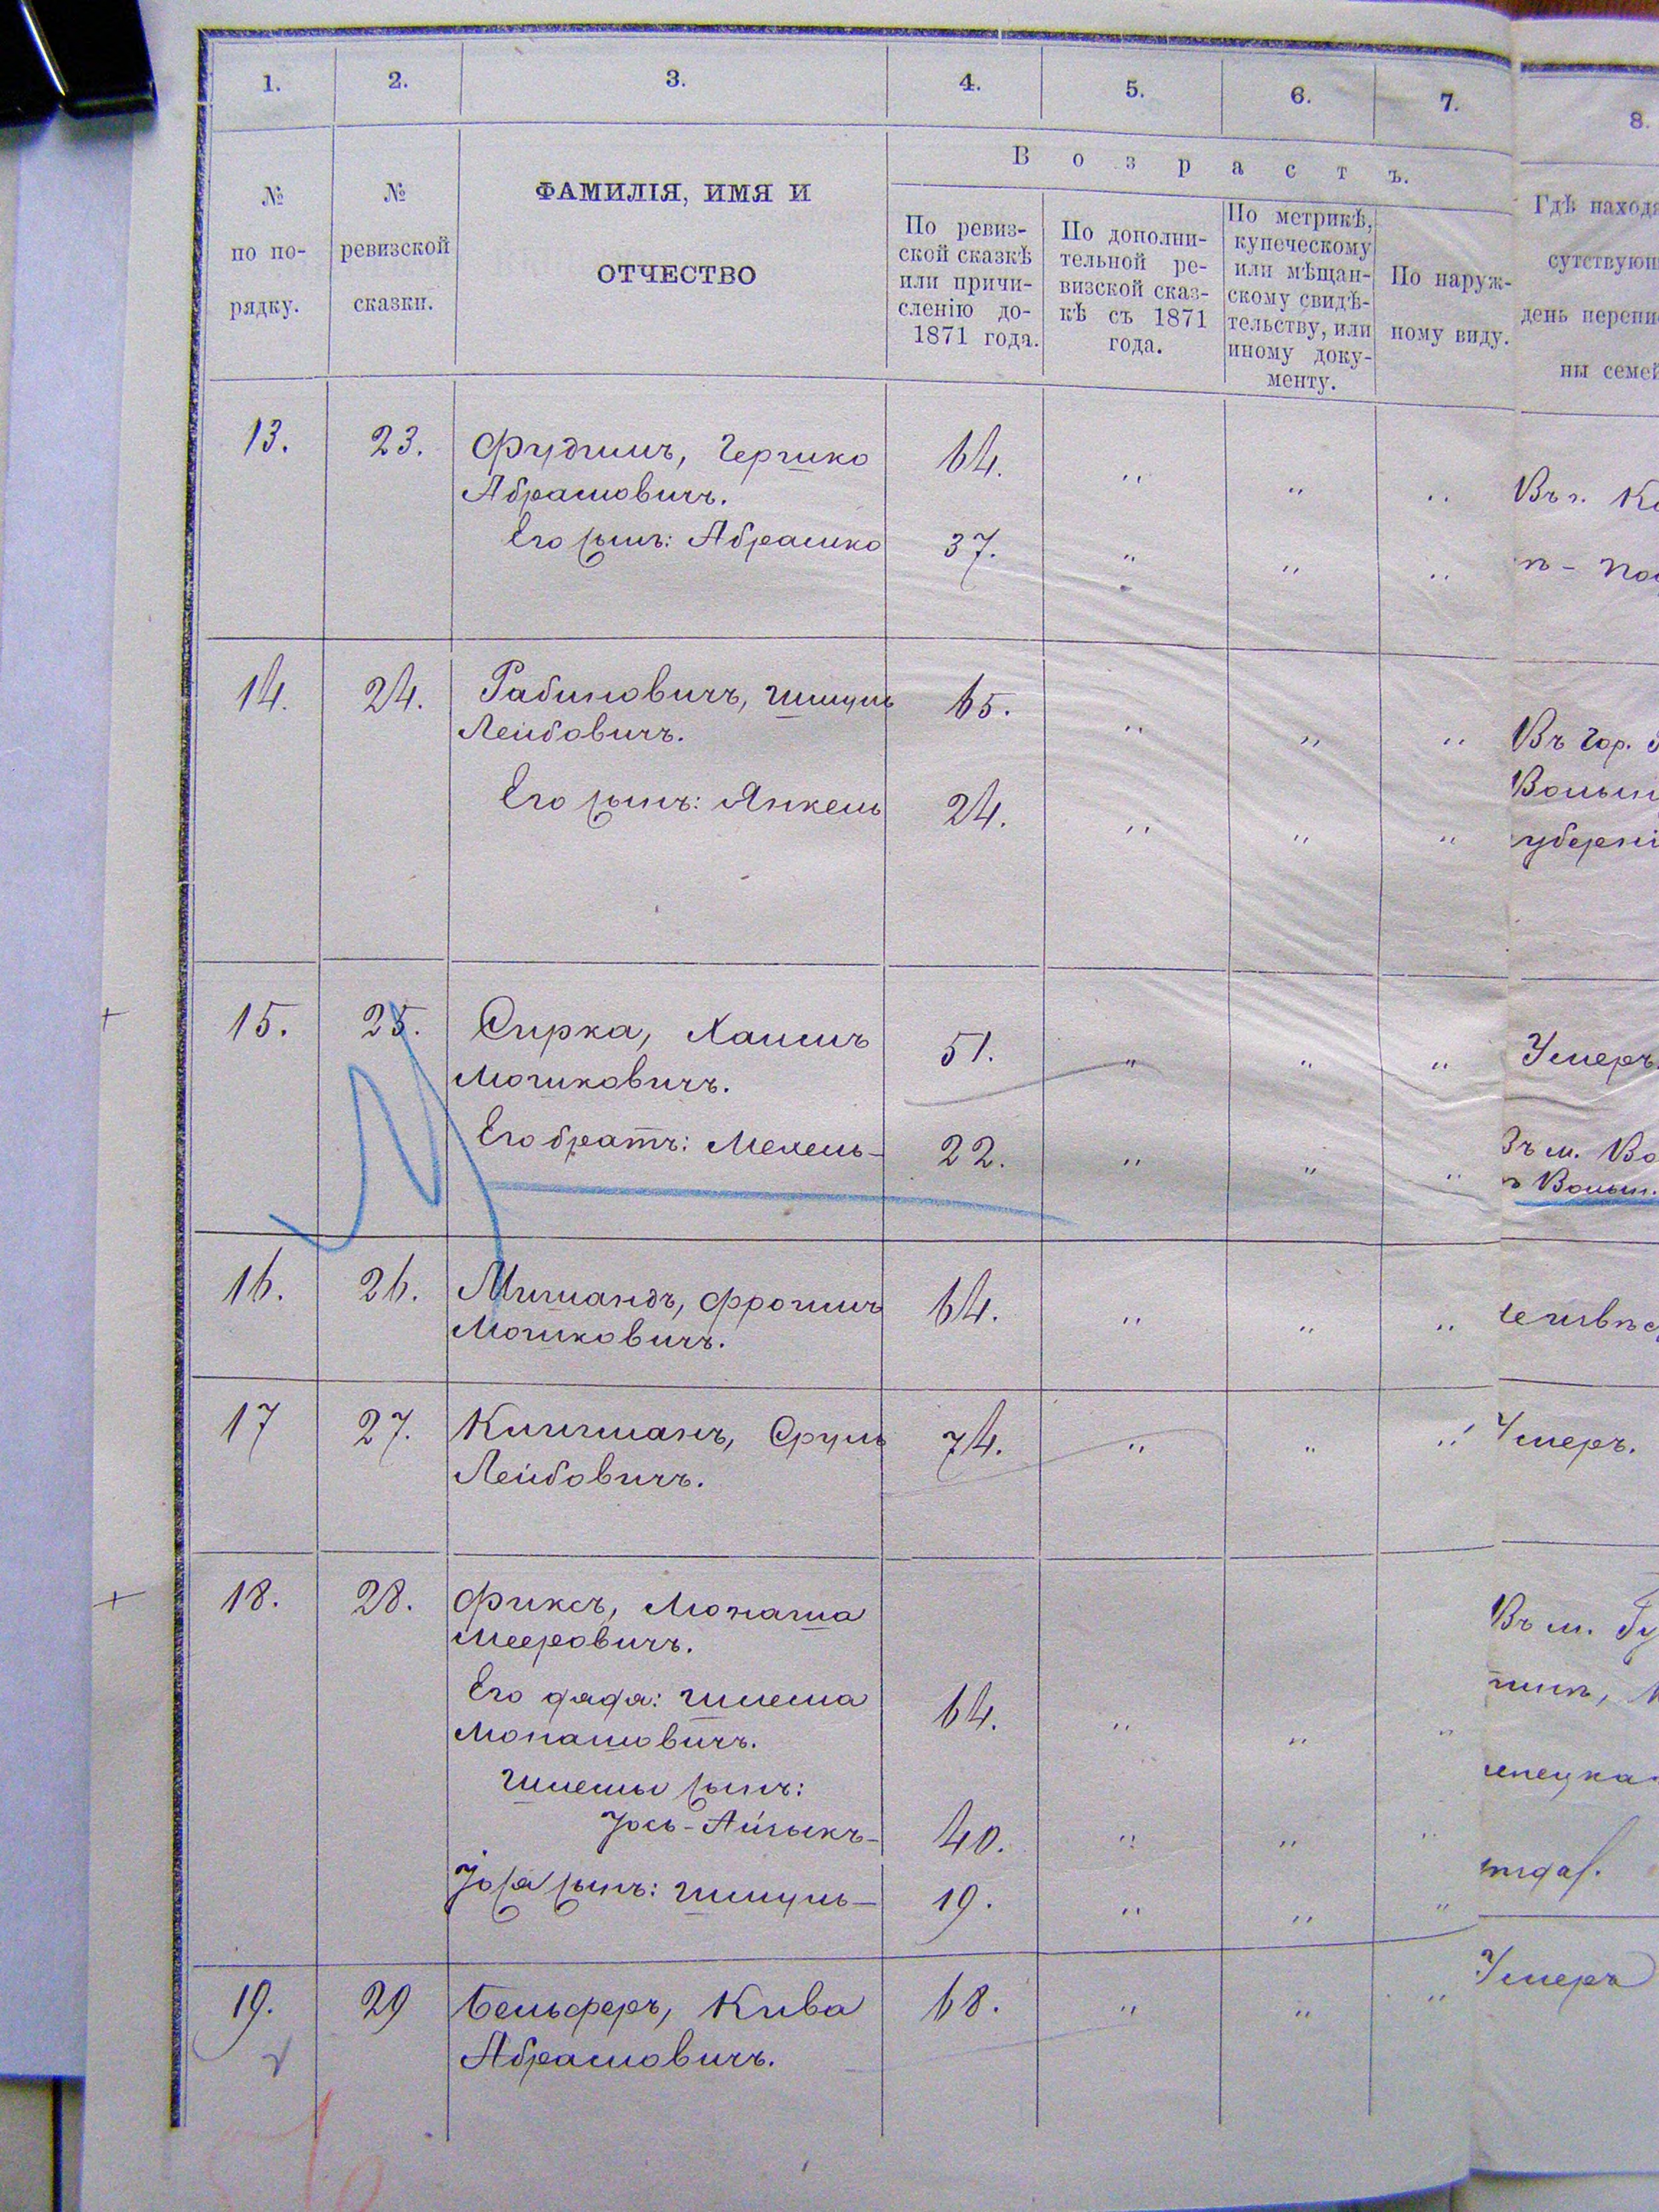 1. 2. 3. 4. 5. 6. 7. 8.
№ по по-рядку.
№ ревизской сказки.
ФАМИЛІЯ, ИМЯ И
ОТЧЕСТВО
Возрастъ.
По ревиз-
ской сказкѣ
или причи-
сленію до-
1871 года.
По дополни-
тельной ре-
визской сказ-
кѣ съ 1871
года.
По метрикѣ,
купеческому
или мѣщан-
скому свидѣ-
тельству, или
иному доку-
менту.
По наруж-
ному виду.
Гдѣ наход
сутствующ
день перепи
ны семей
13. 23. Фудимъ, Гершко 64. " " " Въ г.
Абрамовичъ.
Его сынъ: Абрамко 37. " " "
14. 24. Рабиновичъ, Шмуль 65. " " " Въ гор.
Лейбовичъ. Волын
Его сынъ: Янкель 24. " " " губерні
15. 25. Сирка, Хаимъ 51. " " " Умеръ.
Мошковичъ.
Его братъ: Мехель 22. " " " Въ м. Во
Волын.
16. 26. Мишандъ, Фроимъ 64. " " " неизвѣс
Мошковичъ.
17 27. Клигманъ, Сруль 74. " " " Умеръ.
Лейбовичъ.
18. 28. Фиксъ, Монаша Въ м.
Мееровичъ.
Его дядя: Шлема 64. " " "
Монашовичъ.
Шлемы сынъ:
Іось-Айзыкъ 40. " " "
Іося сынъ: Шмуль 19. " " "
19. 29 Бельферъ, Кива 68. " " " Умеръ
Абрамовичъ.